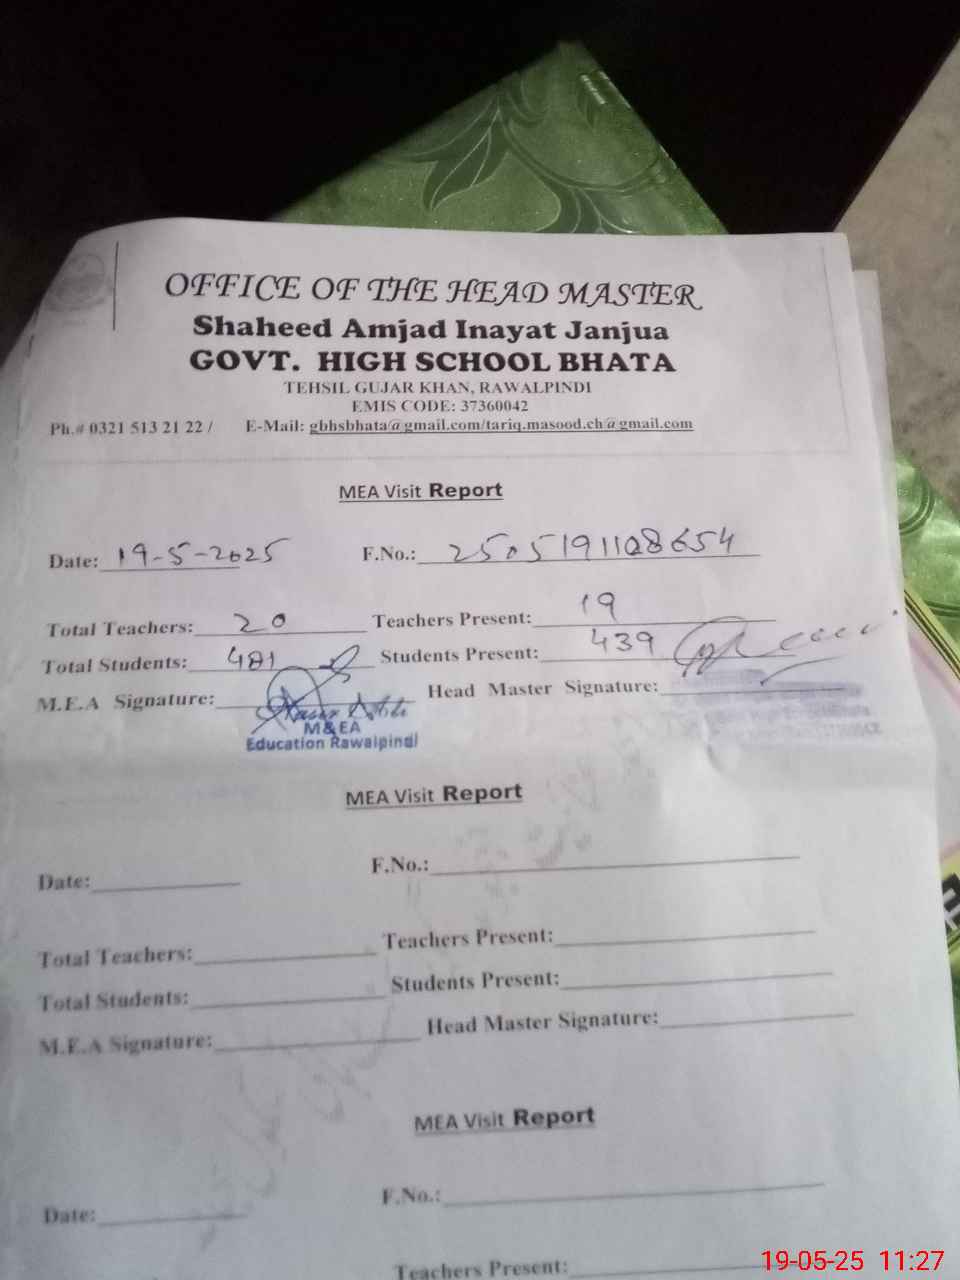 OFFICE OF THE HEAD MASTER
Shaheed Amjad Inayat Janjua
GOVT. HIGH SCHOOL BHATA
TEHSIL GUJAR KHAN, RAWALPINDI
EMIS CODE: 37360042
Ph.# 0321 513 21 22 / E-Mail: gbhsbhata@gmail.com/tariq.masood.ch@gmail.com
MEA Visit Report
Date: 19-5-2025 F.No.: 2505191108654
Total Teachers: 20 Teachers Present: 19
Total Students: 481 Students Present: 439
M.E.A Signature: Head Master Signature:
M&EA
Education Rawalpindi
MEA Visit Report
Date: F.No.:
Total Teachers: Teachers Present:
Total Students: Students Present:
M.E.A Signature: Head Master Signature:
MEA Visit Report
Date: F.No.:
Teachers Present:
19-05-25 11:27